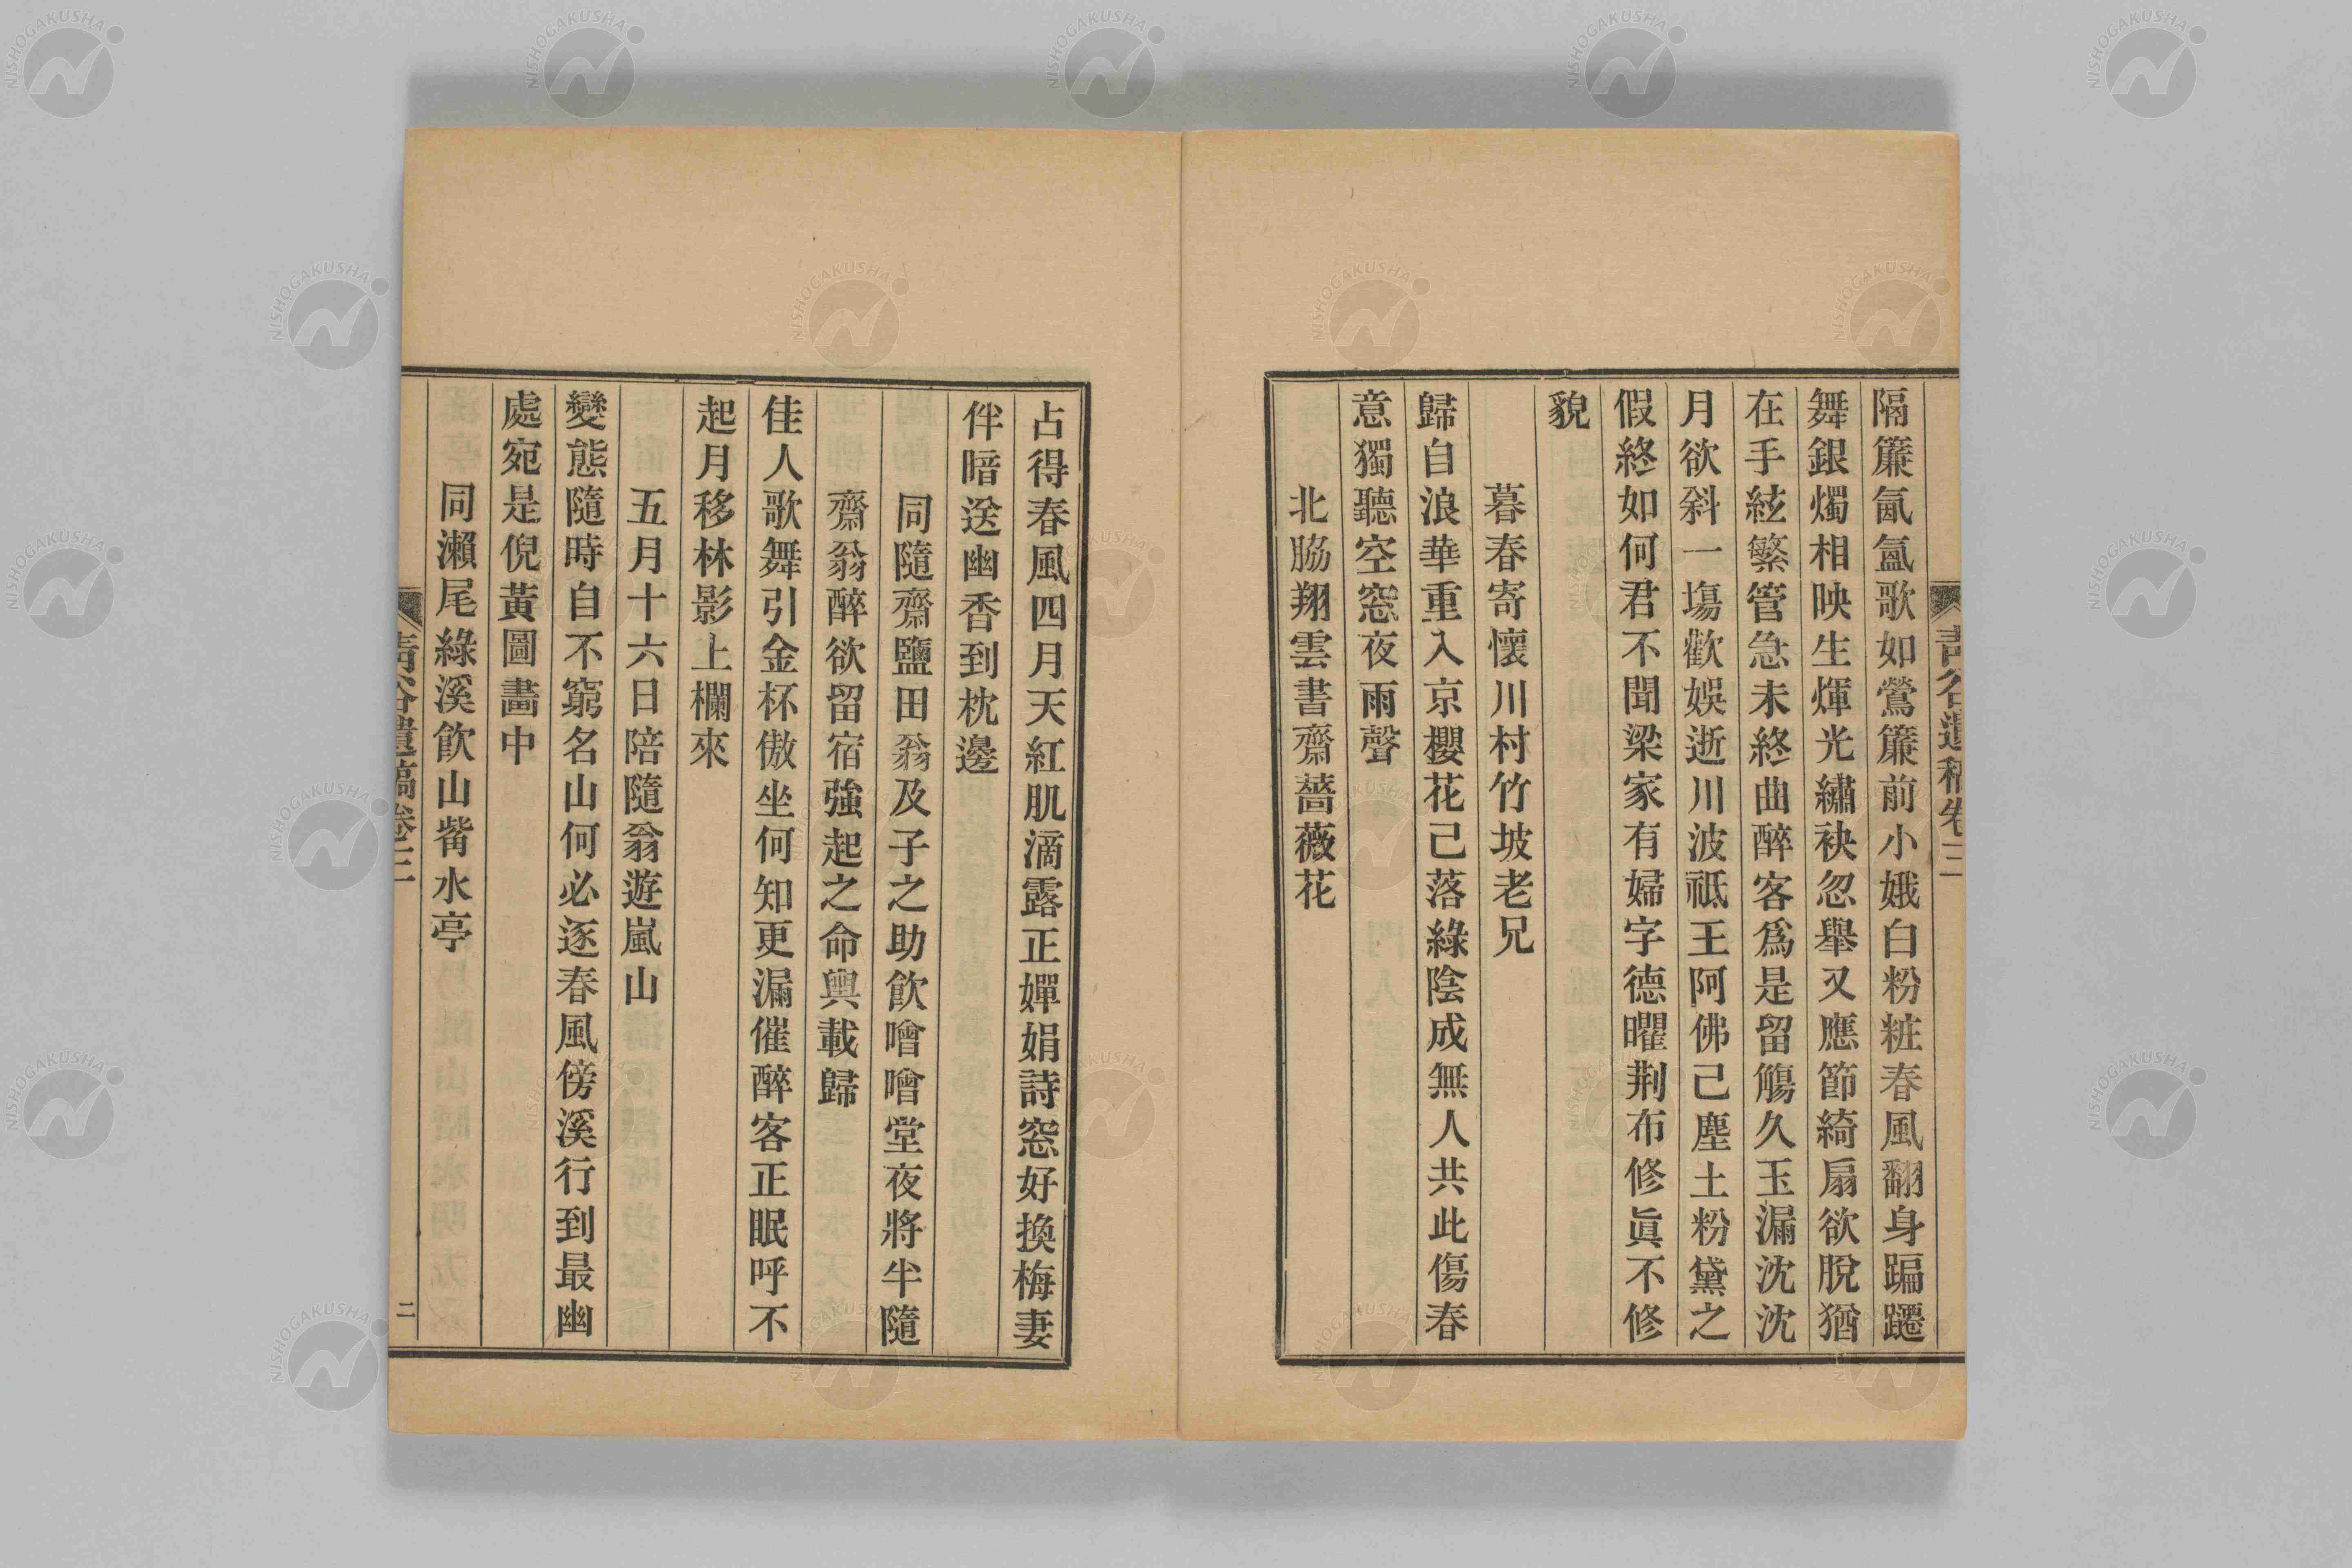 隔簾氤氳歌如鶯簾前小娥白粉粧春風翻身蹁躚
舞銀燭相映生煇光繡袂忽舉又應節綺扇欲脫猶
在手絃繁管急未終曲醉客爲是留觴久玉漏沈沈
月欲斜一塲歡娛逝川波祗王阿佛己塵土粉黛之
假終如何君不聞梁家有婦字德曜荆布修眞不修
貌
暮春寄懷川村竹坡老兄
歸自浪華重入京櫻花己落綠陰成無人共此傷春
意獨聽空窓夜雨聲
北脇翔雲書齋薔薇花
占得春風四月天紅肌滴露正嬋娟詩窓好換梅妻
伴暗送幽香到枕邊
同隨齋鹽田翁及子之助飮噲噲堂夜將半隨
齋翁醉欲留宿強起之命輿載歸
佳人歌舞引金杯傲坐何知更漏催醉客正眠呼不
起月移林影上欄來
五月十六日陪隨翁遊嵐山
變態隨時自不窮名山何必逐春風傍溪行到最幽
處宛是倪黃圖畫中
同瀨尾綠溪飮山觜水亭
靑谷遺稿卷三
二
NISHOGAKUSHA